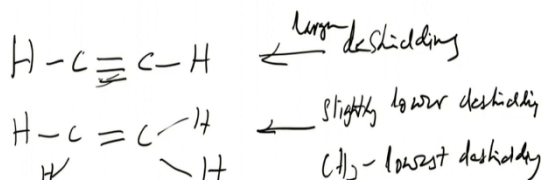 H-C≡C-H ← larger deshielding
H-C=C-H ← slightly lower deshielding
H H CH3 - lowest deshielding